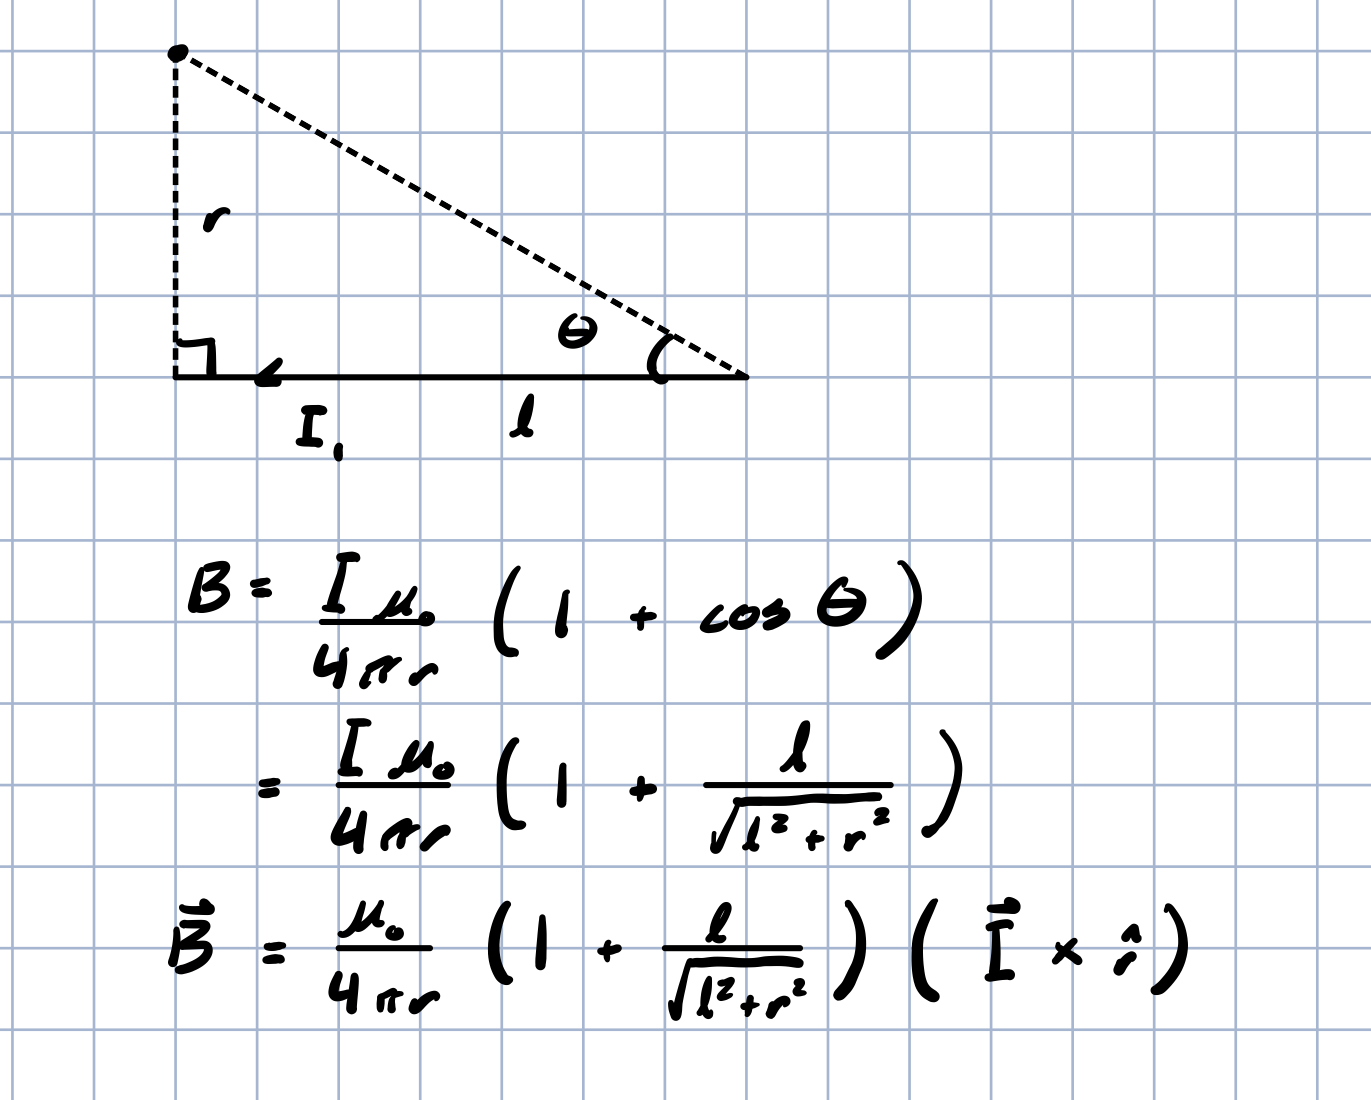 r
θ
I₁ l
B = Iμ₀/4πr (1 + cos θ)
= Iμ₀/4πr (1 + l/√(l² + r²))
B⃗ = μ₀/4πr (1 + l/√(l² + r²)) (I⃗ × r̂)